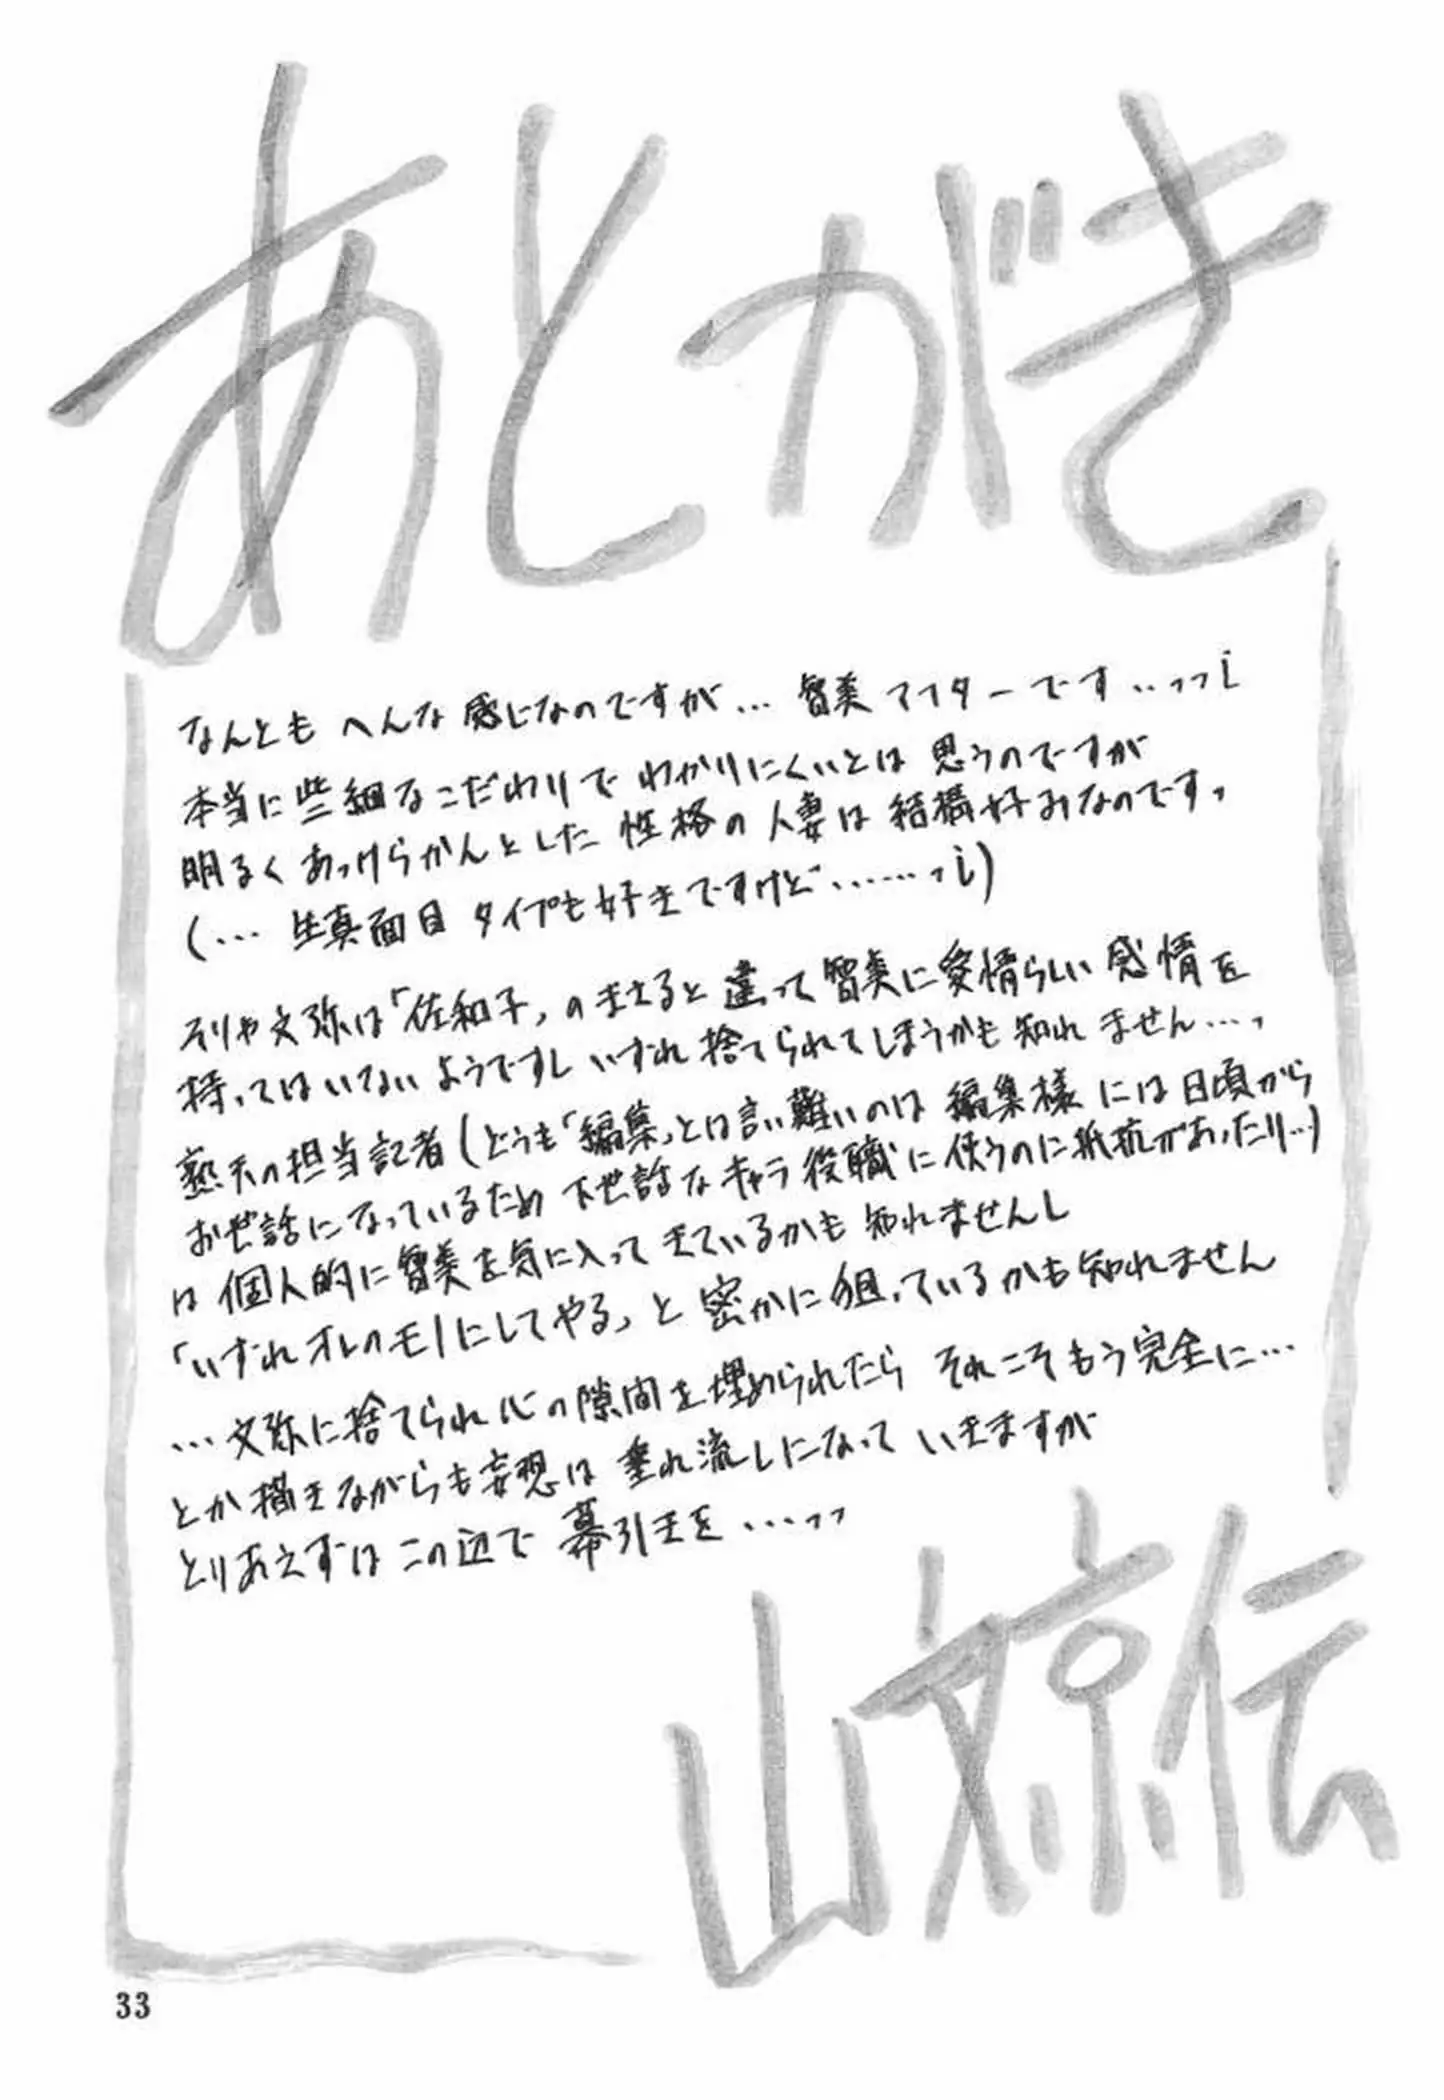 あとがき
なんとも へんな 感じなのですが… 智美 アフターです‥ッッi
本当に些細なこだわりで わかりにくいとは 思うのですが
明るく あっけらかんとした 性格の 人妻は 結構好みなのですッ
(… 生真面目 タイプも好きですけど……ッi)
そりゃ文弥は「佐和子」の まさると 違って 智美に愛情らしい 感情を
持ってはいないようですし いずれ 捨てられてしまうかも 知れ ません…ッ
の担当記者(どうも「編集」とは言い難いのは 編集様 には 日頃から
お世話になっているため 下世話な キャラ 役職に 使うのに抵抗があったり…)
は 個人的に 智美を気に入って きているかも 知れませんし
「いずれオレのモノにしてやる」と 密かに狙っているかも知れません
…文弥に捨てられ心の隙間を埋められたら それこそもう完全に…
とか描きながらも妄想は 垂れ流しになって いきますが
とりあえずは この辺で 幕引きを …ッッ
山文京伝
33